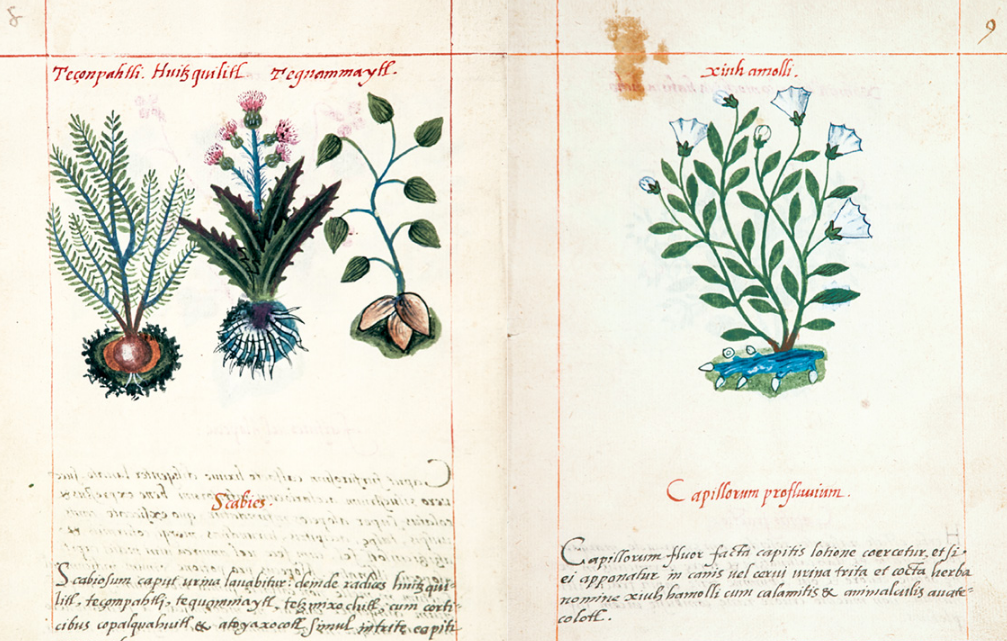 8
Teçonpahtli. Huitzquilitl. Tequammaytl.
Scabies.
Scabiosum caput urina lavabitur: deinde radices huitzqui-
litl, teçompahtli, tequammaytl, tetzmixochitl, cum corti-
cibus copalquahuitl & atoyaxocotl simul intritę capiti
9
xiuh amolli.
Capillorum profluuium.
Capillorum fluor facta capitis lotione coercetur, et si
ei apponatur in canis uel cerui urina trita et cocta herba
nomine xiuh hamolli cum calamitis & animalculis auate-
colotl.